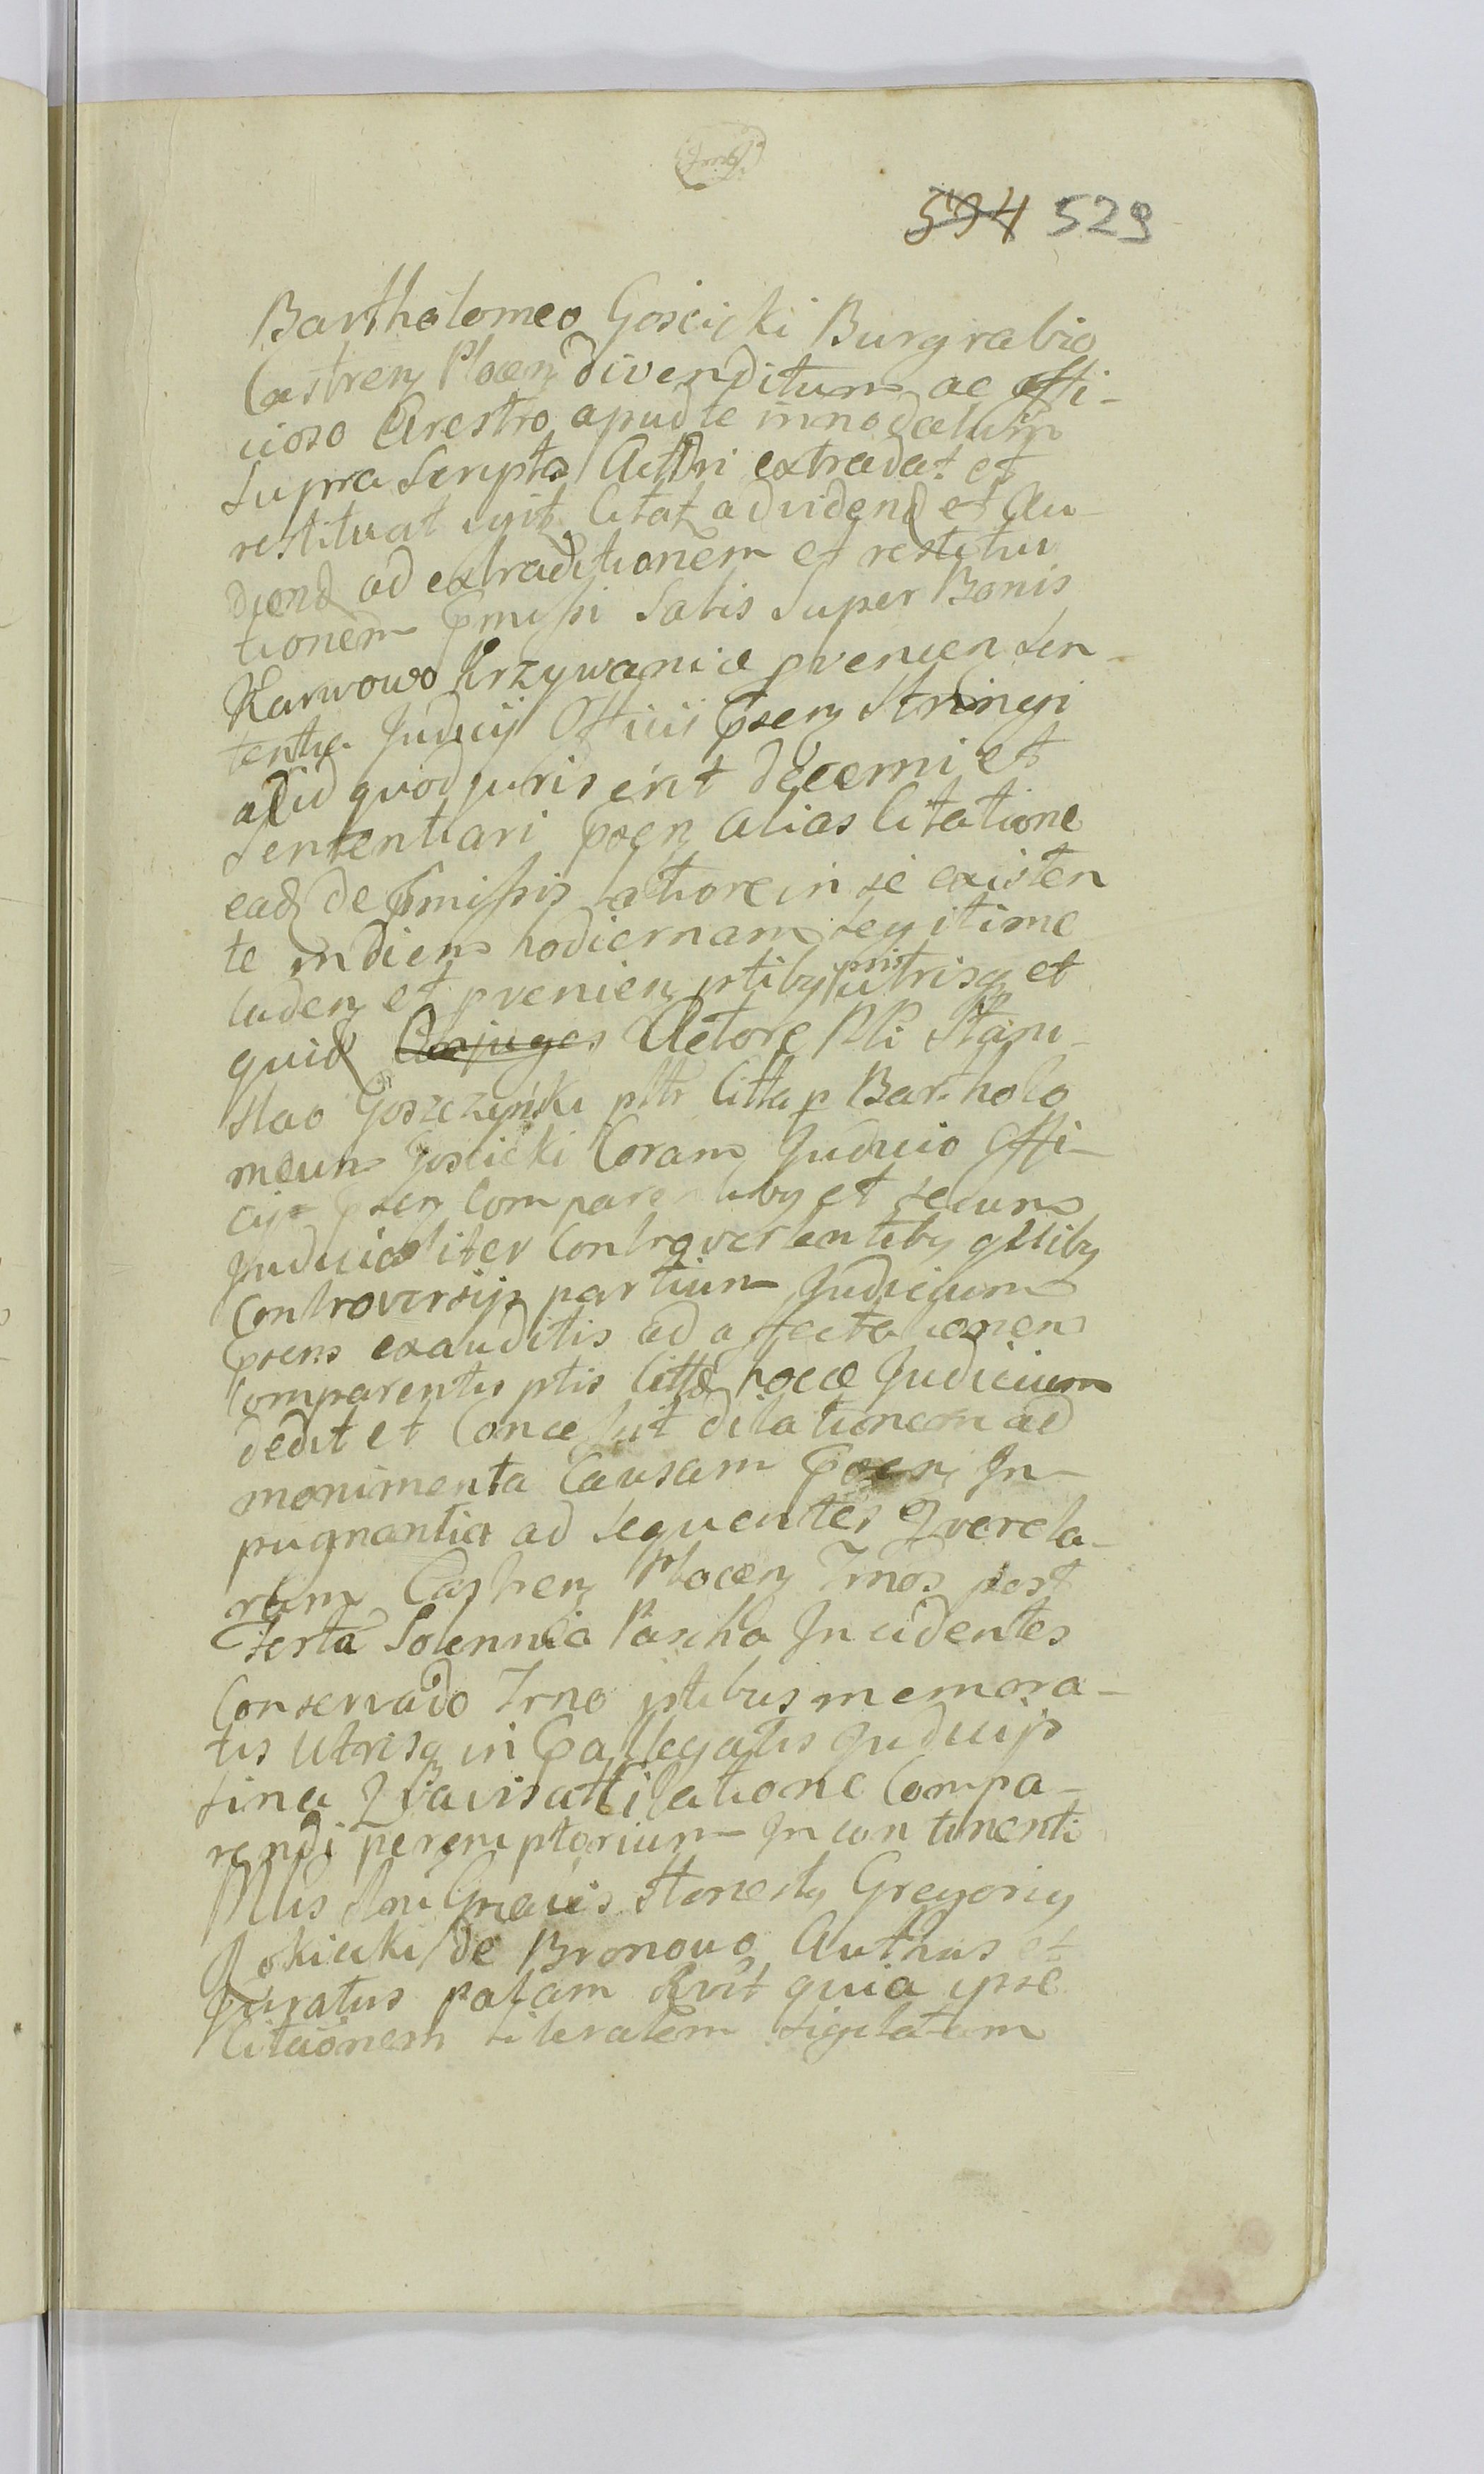 594 529
Bartholomeo Gościcki Burgrabio
Castren Plocen divenditum ac offi-
cioso Arestro apud te innodatum
supra scripto Acttori extradat et
restituat igit Citat ad videnđ et Au-
diend ad extraditionem et restitu
tionem pmissi Salis Super Bonis
Karwowo Krzywanice pvenien sen-
tentia Judicij Officii psen Stringi
alid quod juris erit decerni et
Sententiari psen alias Citatione
ead de pmissis latiore in se existen
te in diem hodiernam legitime
caden et pvenien ptiby pris utrisq et
quid Conjuges Actore Nli Stani-
slao Goszczyński pltr Citta p Bartholo
meum Gościcki Coram Judicio Offi-
cij psen Comparentiby et secum
Judicialiter Controvertentiby qlliby
Controversijs partium Judicium
psens exauditis ad affectationem
Comparentis ptis Citte hocce Judicium
dedit et Concessit dilationem ad
monimenta Causam psen In-
pugnantia ad sequentes Querela-
rum Castren Plocen Trnos post
Festa Solennia Pascha Incidentes
Conservado Trno ptibus memora-
tis utrisq in pallegatis Judicijs
sine quavis attilatione Compa-
rendi peremptorium In continenti
Nllis Honesty Gregoriy
Rokicki de Bronowo Authus et
Juratus palam quia ipse
Citaōnem literalem sigilatam